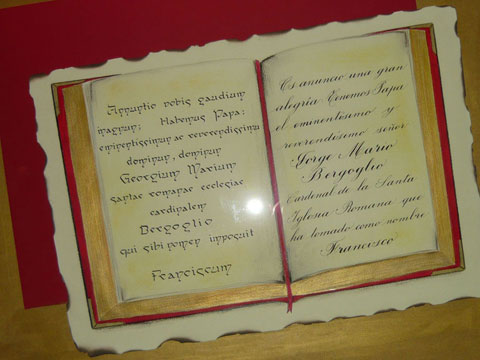 Annuntio vobis gaudium
magnum; Habemus Papam:
eminentissimum ac reverendissimum
dominum, dominum
Georgium Marium
sanctae romanae ecclesiae
cardinalem
Bergoglio
qui sibi nomen imposuit
Franciscum
Os anuncio una gran
alegría Tenemos Papa
el eminentísimo y
reverendísimo señor
Jorge Mario
Bergoglio
Cardenal de la Santa
Iglesia Romana que
ha tomado como nombre
Francisco